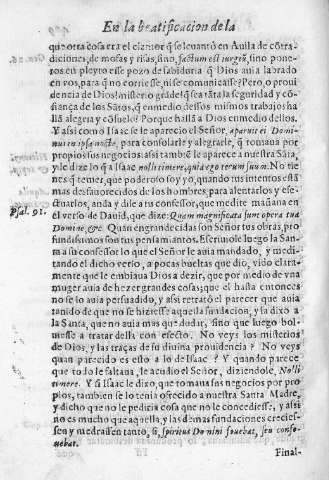 En la beatificacion de la
que otra cosa era el clamor q̃ se leuantò en Auila de cõtra-
diciones, de mosas y risas, sino, factum est iurgiũ, sino pone-
ros en pleyto esse pozo de sabiduria q̃ Dios auia labrado
en vos, para q̃ no corriesse, ni se comunicasse? Pero, o proui-
dencia de Dios! misterio grãde! q̃ será la seguridad y cõ-
fiança de los Sãtos, q̃ en medio dessos mismos trabajos ha
llã alegria y cõsuelo? Porque hallã a Dios en medio dellos.
Y assi como a Isaac se le aparecio el Señor, aparuit ei Domi-
nus in ipsa nocte, para consolarle y alegrarle, q̃ tomaua por
propios sus negocios assi tambiẽ le aparece a nuestra Sãta,
y le dize lo q̃ a Isaac nolli timere, quia ego tecum sum. No tie
nes q̃ temer, que poderoso soy yo, quando tus intentos estã
mas desfauorecidos de los hombres, para alentarlos y esfe-
çuarlos, anda y dile a tu confessor, que medite mañana en
Psal. 91. el verso de Dauid, que dize: Quam magnificata sunt opera tua
Domine, &c. Quan engrandecidas son Señor tus obras, pro
fundissimos son tus pensamiẽtos. Escriuiole luego la San-
ta a su confessor lo que el Señor le auia mandado, y medi-
tando el dicho verso, a pocas bueltas que dio, vido clara-
mente que le embiaua Dios a dezir, que por medio de vna
muger auia de hezer grandes cosas; que el hasta entonces
no se lo auia persuadido, y assi retratò el parecer que auia
tenido de que no se hiziesse aquella fundacion, y la dixo a
la Santa, que no auia mas que dudar, sino que luego bol-
uiesse a tratar della con efecto. No veys los misterios
de Dios, y las traças de su diuina prouidencia? No veys
quan parecido es esto a lo de Isaac? Y quando parece
que todo le faltaua, le acudio el Señor, diziendole, Nolli
timere. Y si a Isaac le dixo, que tomaua sus negocios por pro
pios, tambien se lo tenia ofrecido a nuestra Santa Madre,
y dicho que no le pediria cosa que no le concediesse, y assi
no es mucho que aquella, y las demas fundaciones crecies-
sen y medrassen tanto, si, Spiritus Domini fouebat, seu confo-
uebat.
Final-